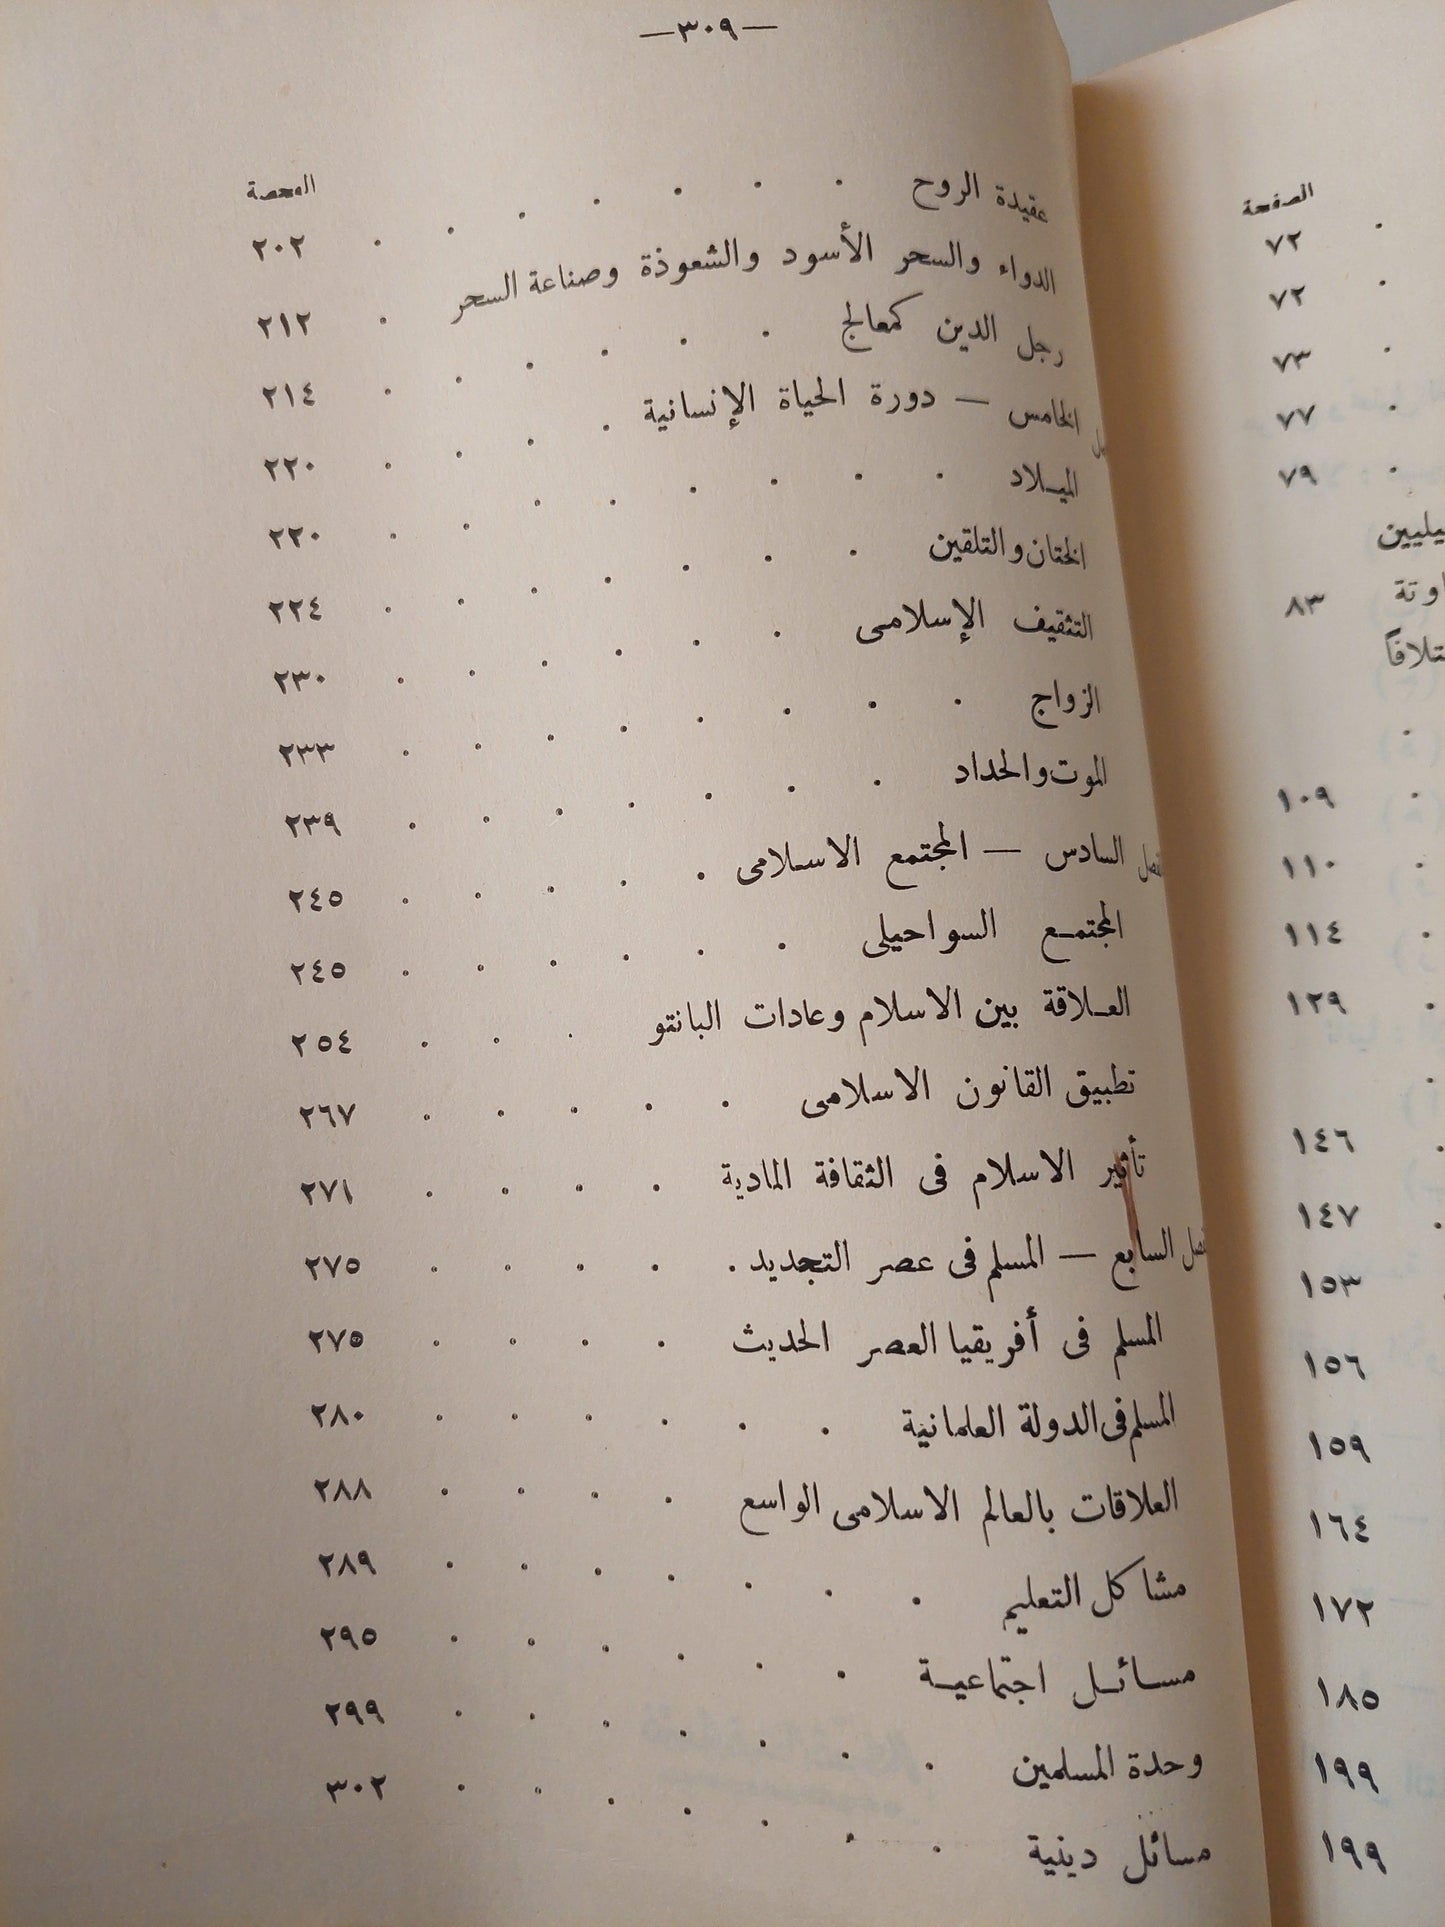 الصفحة
٧٢
٧٢
٧٣
٧٧
٧٩
٨٣
١٠٩
١١٠
١١٤
١٢٩
١٤٦
١٤٧
١٥٣
١٥٦
١٥٩
١٦٤
١٧٢
١٨٥
١٩٩
١٩٩
—٣٠٩—
عقيدة الروح . . . . . . . . ٢٠٢
الدواء والسحر الأسود والشعوذة وصناعة السحر . ٢١٢
رجل الدين كمعالج . . . . . . ٢١٤
الخامس — دورة الحياة الإنسانية . . . . ٢٢٠
الميـلاد . . . . . . . . ٢٢٠
الختان والتلقين . . . . . . . ٢٢٤
التثقيف الإسلامى . . . . . . ٢٣٠
الزواج . . . . . . . . ٢٣٣
الموت والحداد . . . . . . . ٢٣٩
السادس — المجتمع الاسلامى . . . . . ٢٤٥
المجتمـع السواحيلى . . . . . . ٢٤٥
العـلاقة بين الاسلام وعادات البانتو . . . ٢٥٤
تطبيق القانون الاسلامى . . . . . ٢٦٧
تأثير الاسلام فى الثقافة المادية . . . . ٢٧١
السابع — المسلم فى عصر التجديد . . . . . ٢٧٥
المسلم فى أفريقيا العصر الحديث . . . . ٢٧٥
المسلم فى الدولة العلمانية . . . . . . ٢٨٠
العلاقات بالعالم الاسلامى الواسع . . . . ٢٨٨
مشاكل التعليم . . . . . . . ٢٨٩
مسـائـل اجتماعيـة . . . . . . ٢٩٥
وحدة المسلمين . . . . . . . ٢٩٩
مسائل دينية . . . . . . . ٣٠٢